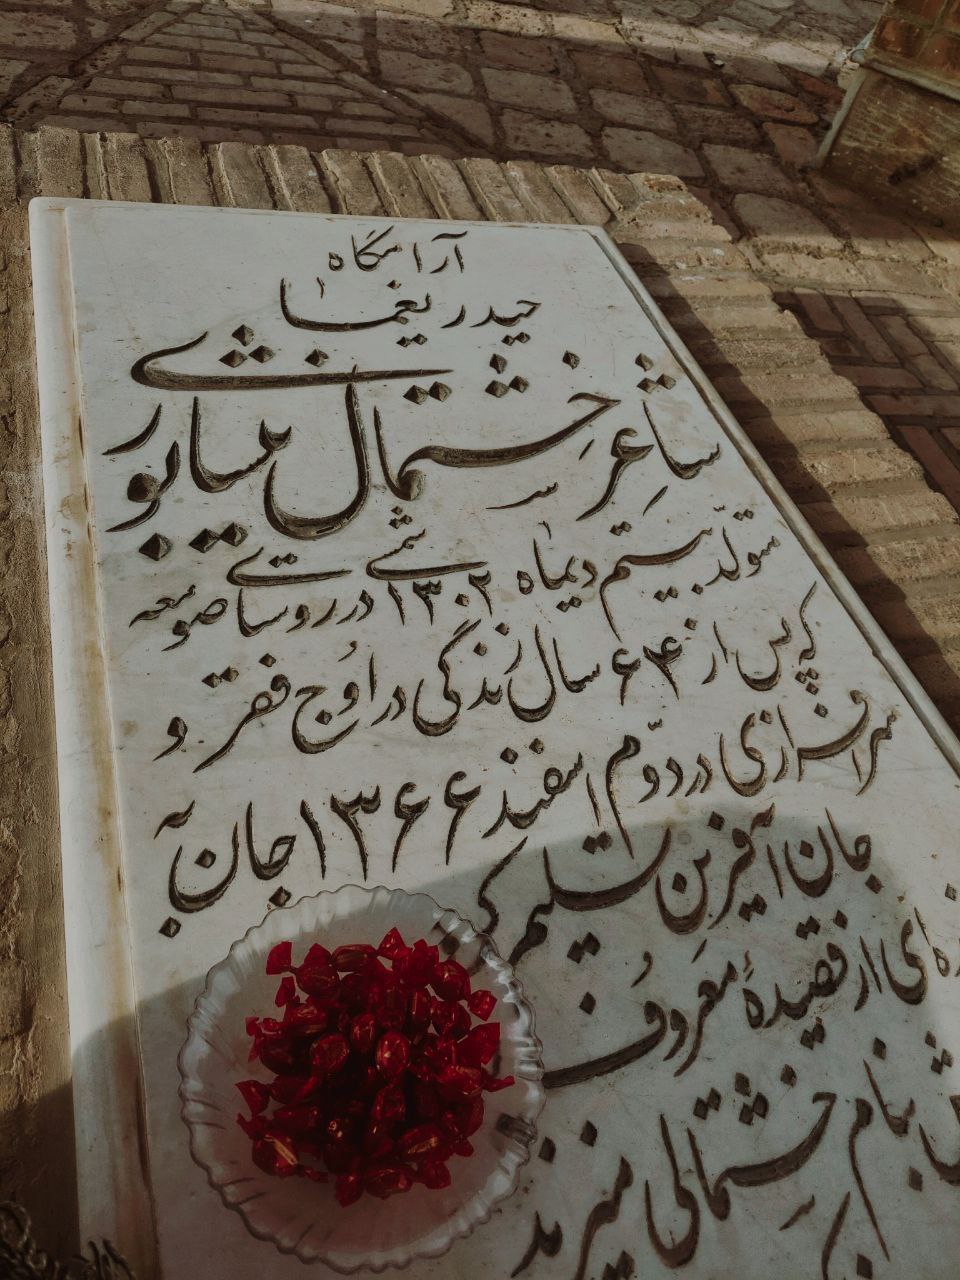 آرامگاه
حیدر یغما
شاعر خشتمال نیشابوری
متولد بیستم دیماه ۱۳۰۲ شمسی در روستای صومعه
که پس از ۶۴ سال زندگی در اوج فقر و
سرافرازی در دوّم اسفند ۱۳۶۶ جان به
جان آفرین تسلیم کرد
ای از قصیدهٔ معروف
بنام خشتمالی میزند